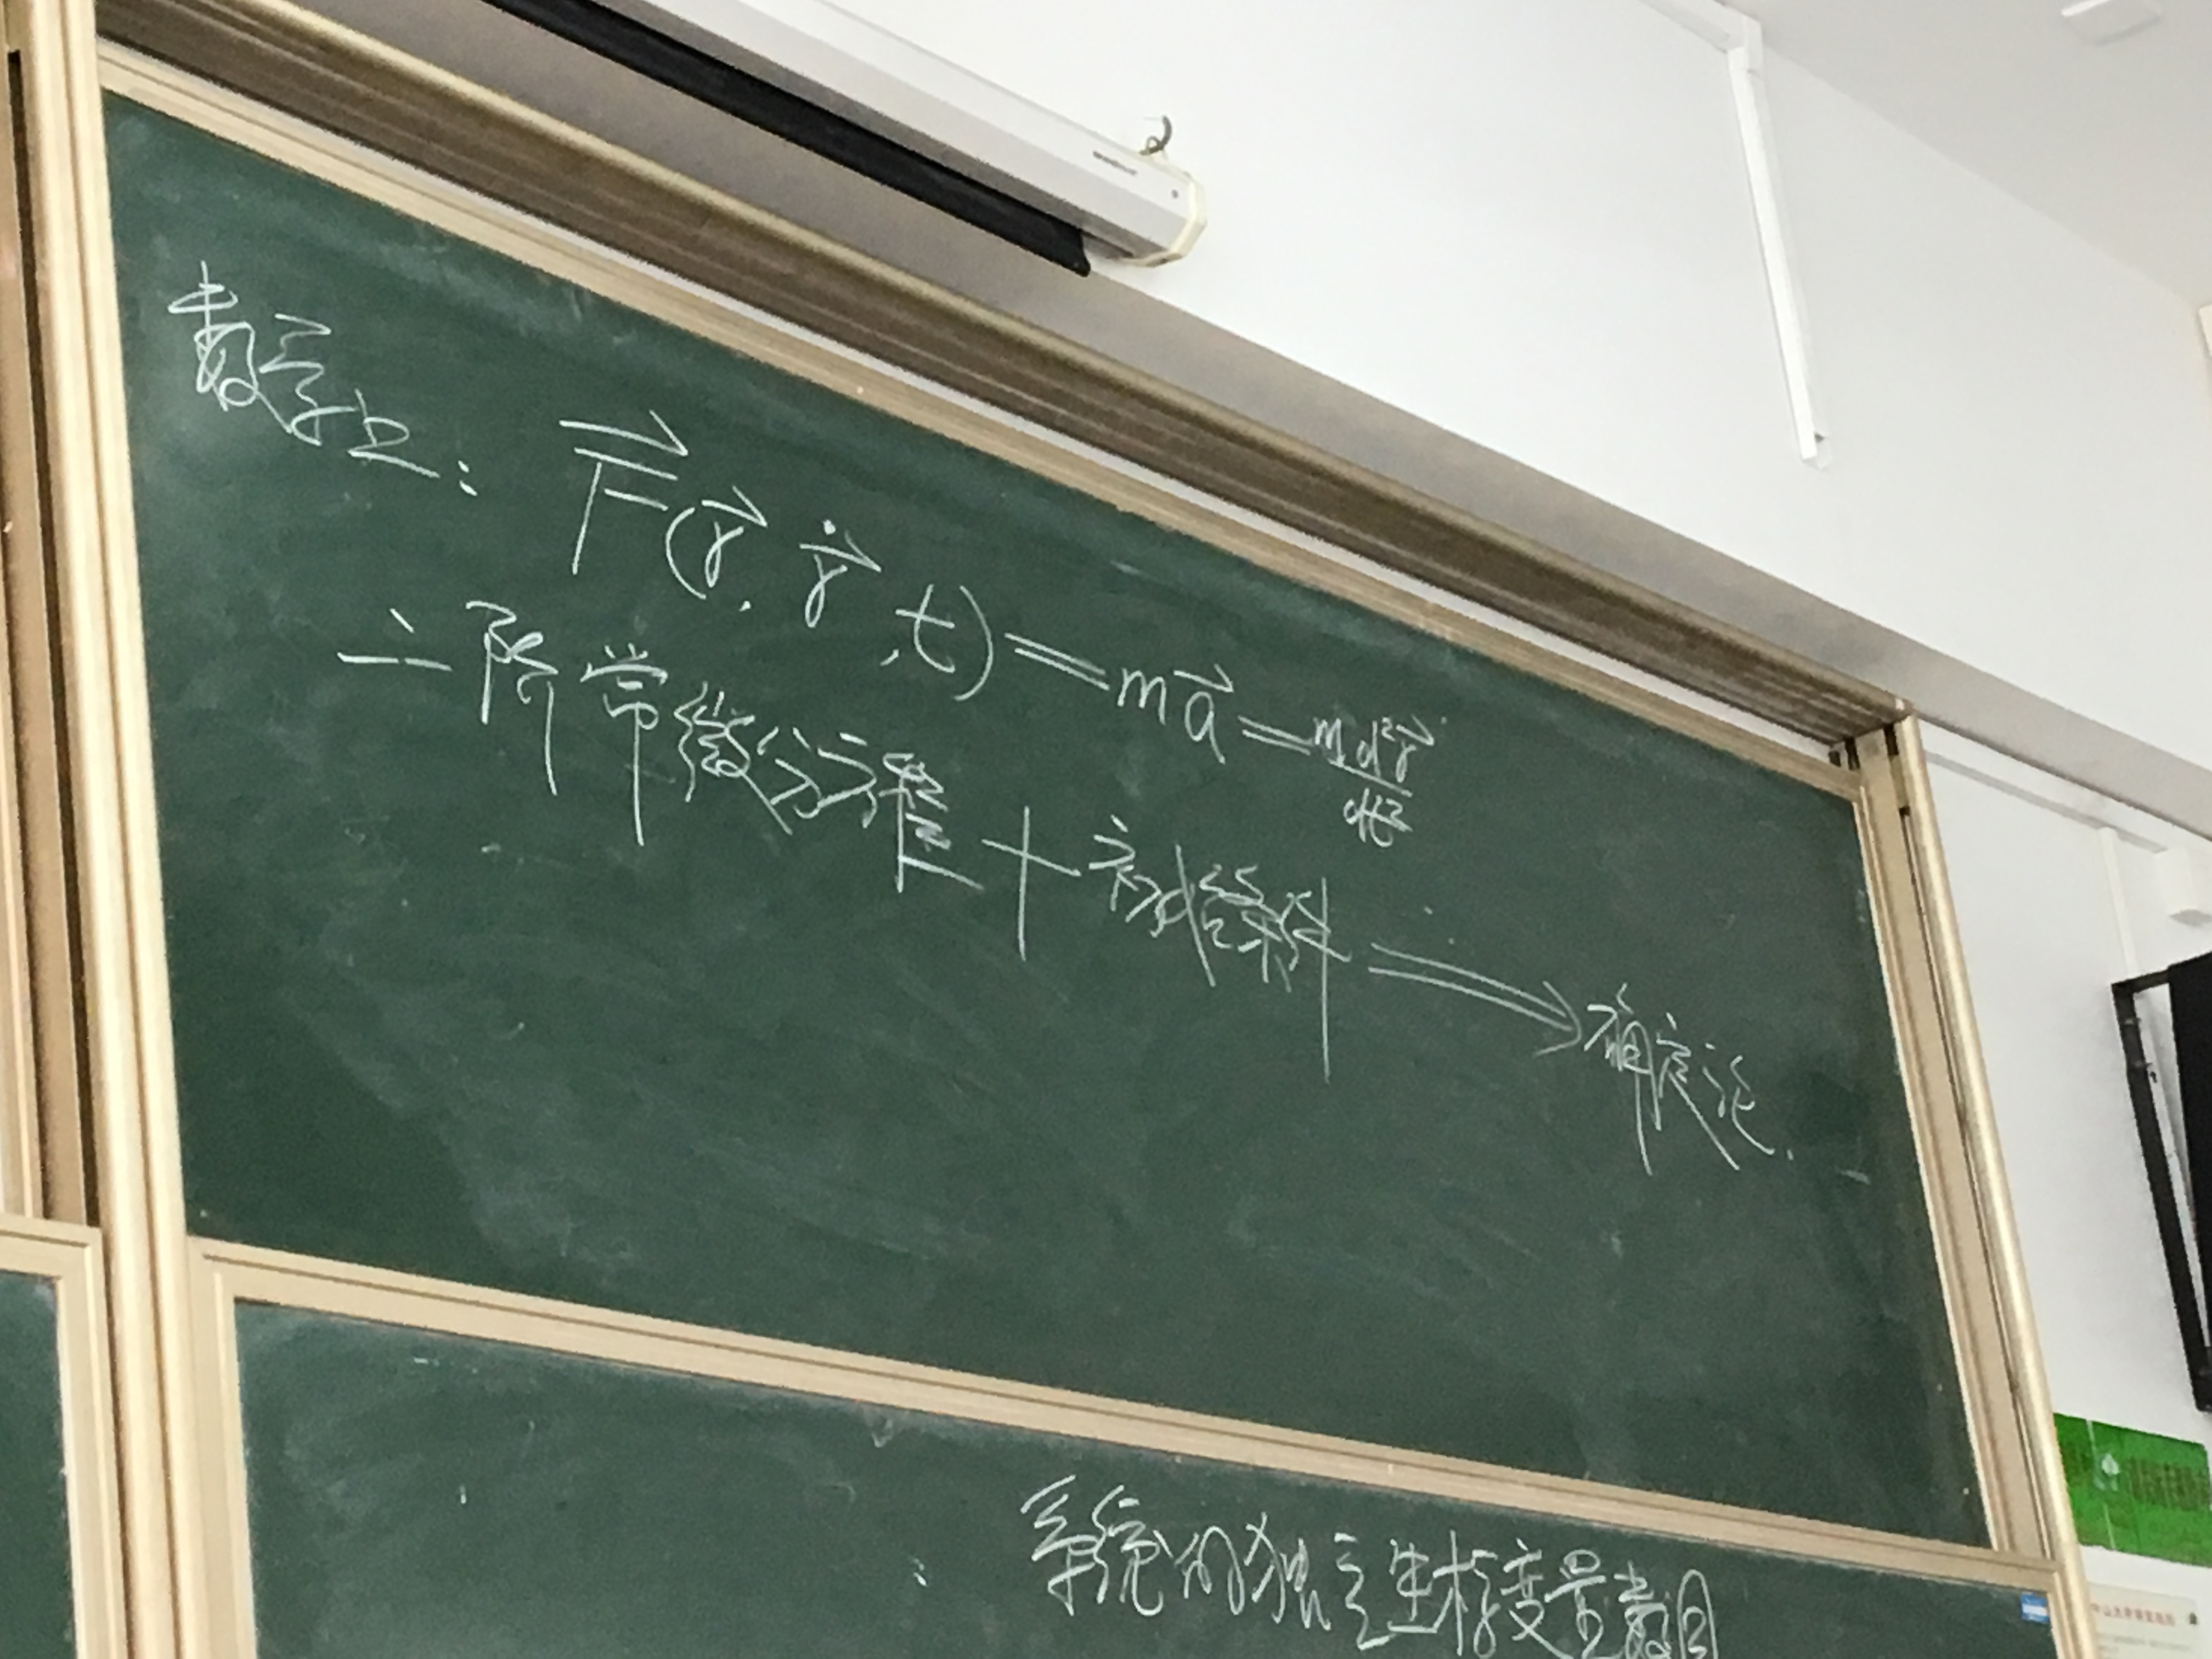 数学上: $\vec{F}(\vec{r}, \dot{\vec{r}}, t) = m\vec{a} = \frac{m d^2\vec{r}}{dt^2}$
二阶常微分方程 + 初始条件 ⟹ 确定论.
: 系统的独立坐标变量数目